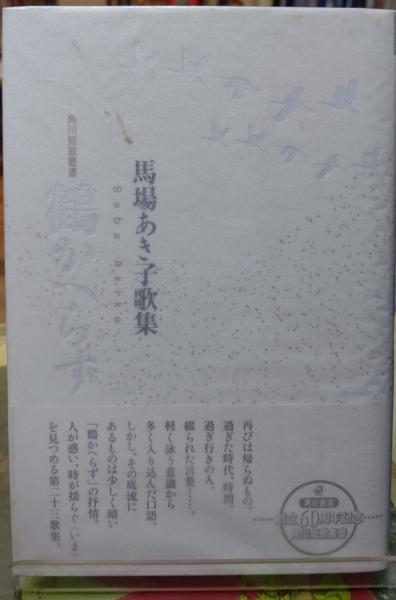 馬場あき子歌集
Baba Akiko
角川短歌叢書
鶴かへらず
再びは帰らぬもの、
過ぎた時代、時間、
過ぎ行きの人、
綴られた言葉……。
軽く詠う意識から
多く入り込んだ口語。
しかし、その底流に
あるものは少しく暗い
「鶴かへらず」の抒情。
人が惑い、時が揺らぐ〈いま〉
を見つめる第二十三歌集。
角川書店
創立60周年記念
角川短歌叢書